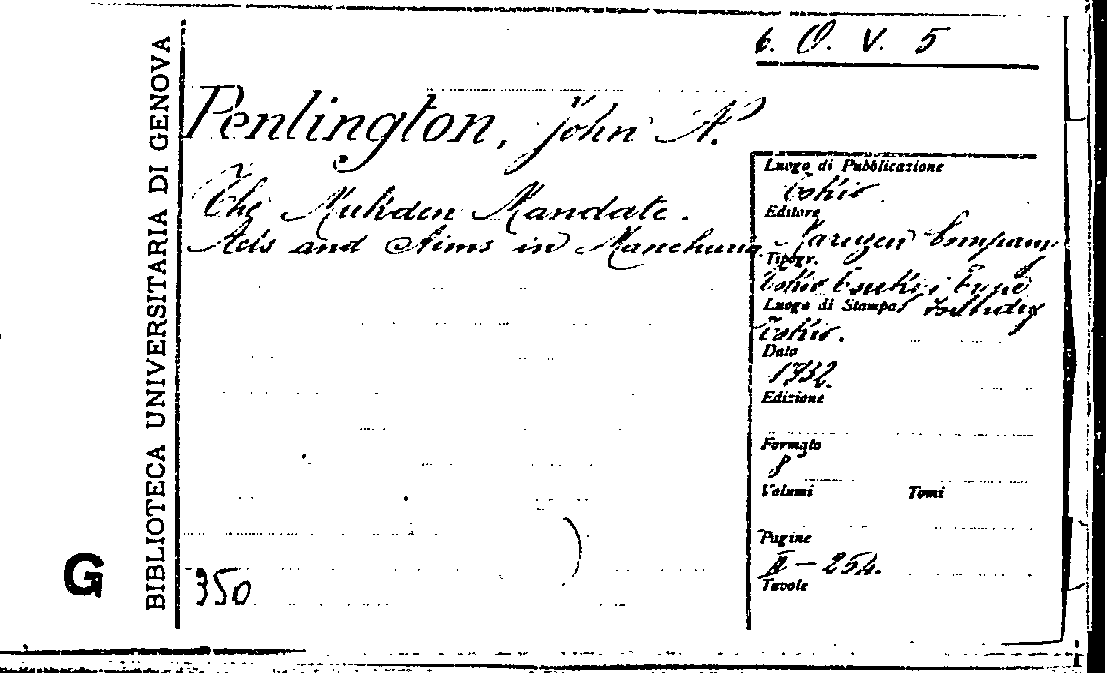 6. O. V. 5
BIBLIOTECA UNIVERSITARIA DI GENOVA
G
Penlington, John N.
The Mukden Mandate.
Acts and Aims in Manchuria
350
Luogo di Pubblicazione
Tokio
Editore
Maruzen Company
Tipogr.
Tokio Tsukiji Type
foundry
Luogo di Stampa
Tokio.
Data
1932.
Edizione
Formato
8
Volumi Tomi
Pagine
II – 254.
Tavole